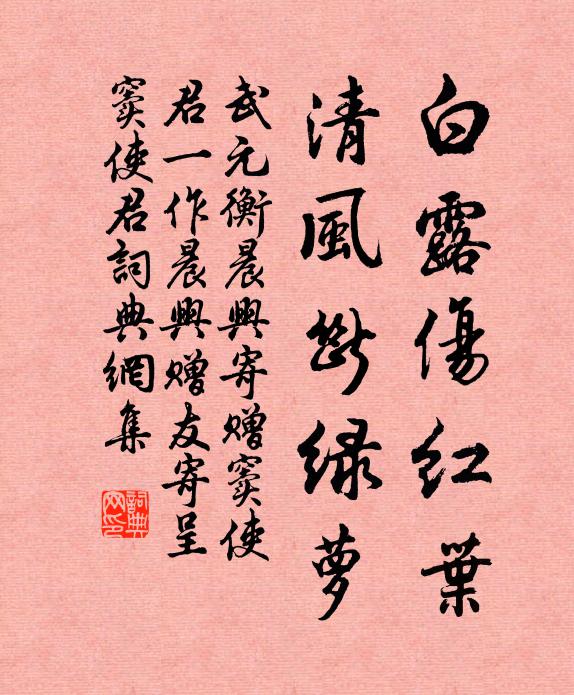 白露傷紅葉
清風斷綠夢
武元衡晨興寄贈竇使
君一作晨興贈友寄呈
竇使君詞典網集
詞典网印